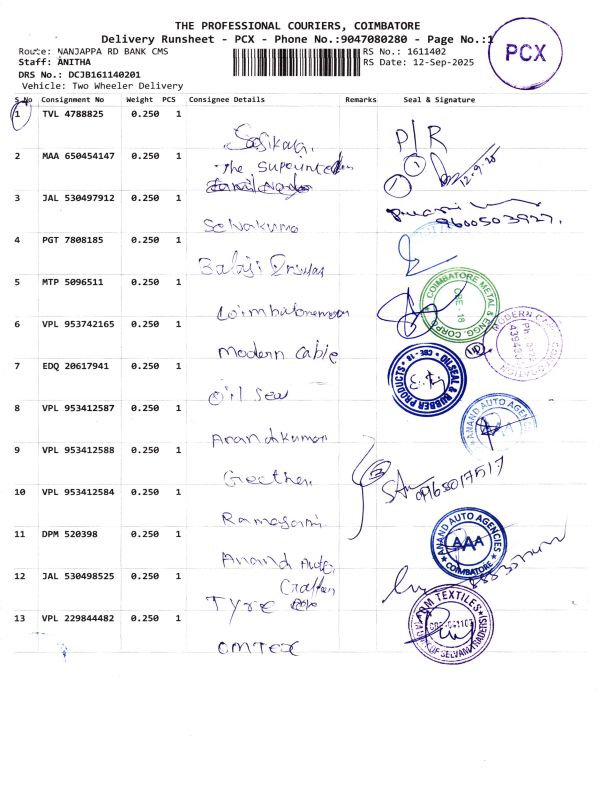 THE PROFESSIONAL COURIERS, COIMBATORE
Delivery Runsheet - PCX - Phone No.:9047080280 - Page No.:1
PCX
Route: NANJAPPA RD BANK CMS
RS No.: 1611402
Staff: ANITHA
RS Date: 12-Sep-2025
DRS No.: DCJB161140201
Vehicle: Two Wheeler Delivery
S.No Consignment No Weight PCS Consignee Details Remarks Seal & Signature
1 TVL 4788825 0.250 1
Sasikala. P/R
2 MAA 650454147 0.250 1
The
12-9-25
3 JAL 530497912 0.250 1
Selvakumar 9600503927.
4 PGT 7808185 0.250 1
Balaji
5 MTP 5096511 0.250 1
COIMBATORE METAL & ENGG. CORPN
CBE - 18
6 VPL 953742165 0.250 1
Modern Cable
MODERN CABLE
7 EDQ 20617941 0.250 1
Oil Seal
OILSEAL & RUBBER PRODUCTS
CBE - 18
8 VPL 953412587 0.250 1
Anandkumar
ANAND AUTO AGENCIES
9 VPL 953412588 0.250 1
Geetha
3
10 VPL 953412584 0.250 1
Ramasami
11 DPM 520398 0.250 1
Anand Auto
ANAND AUTO AGENCIES
AAA
COIMBATORE
12 JAL 530498525 0.250 1
TYRE
13 VPL 229844482 0.250 1
OMTEX
RM TEXTILES
OF SELVAM TRADERS